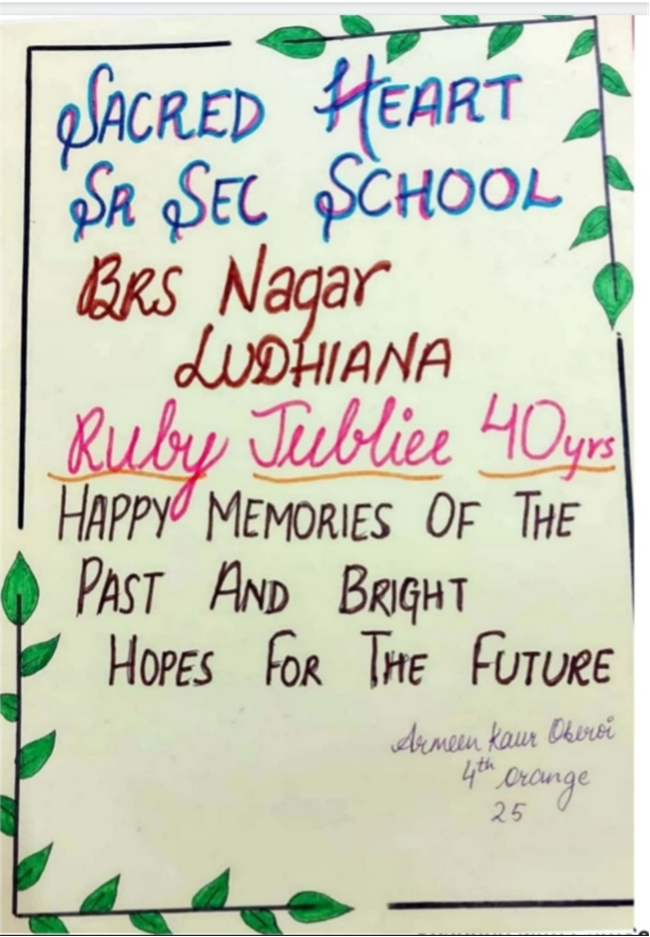 SACRED HEART
SR SEC SCHOOL
BRS Nagar
LUDHIANA
Ruby Jubliee 40yrs
HAPPY MEMORIES OF THE
PAST AND BRIGHT
HOPES FOR THE FUTURE
Armeen Kaur Oberoi
4th Orange
25